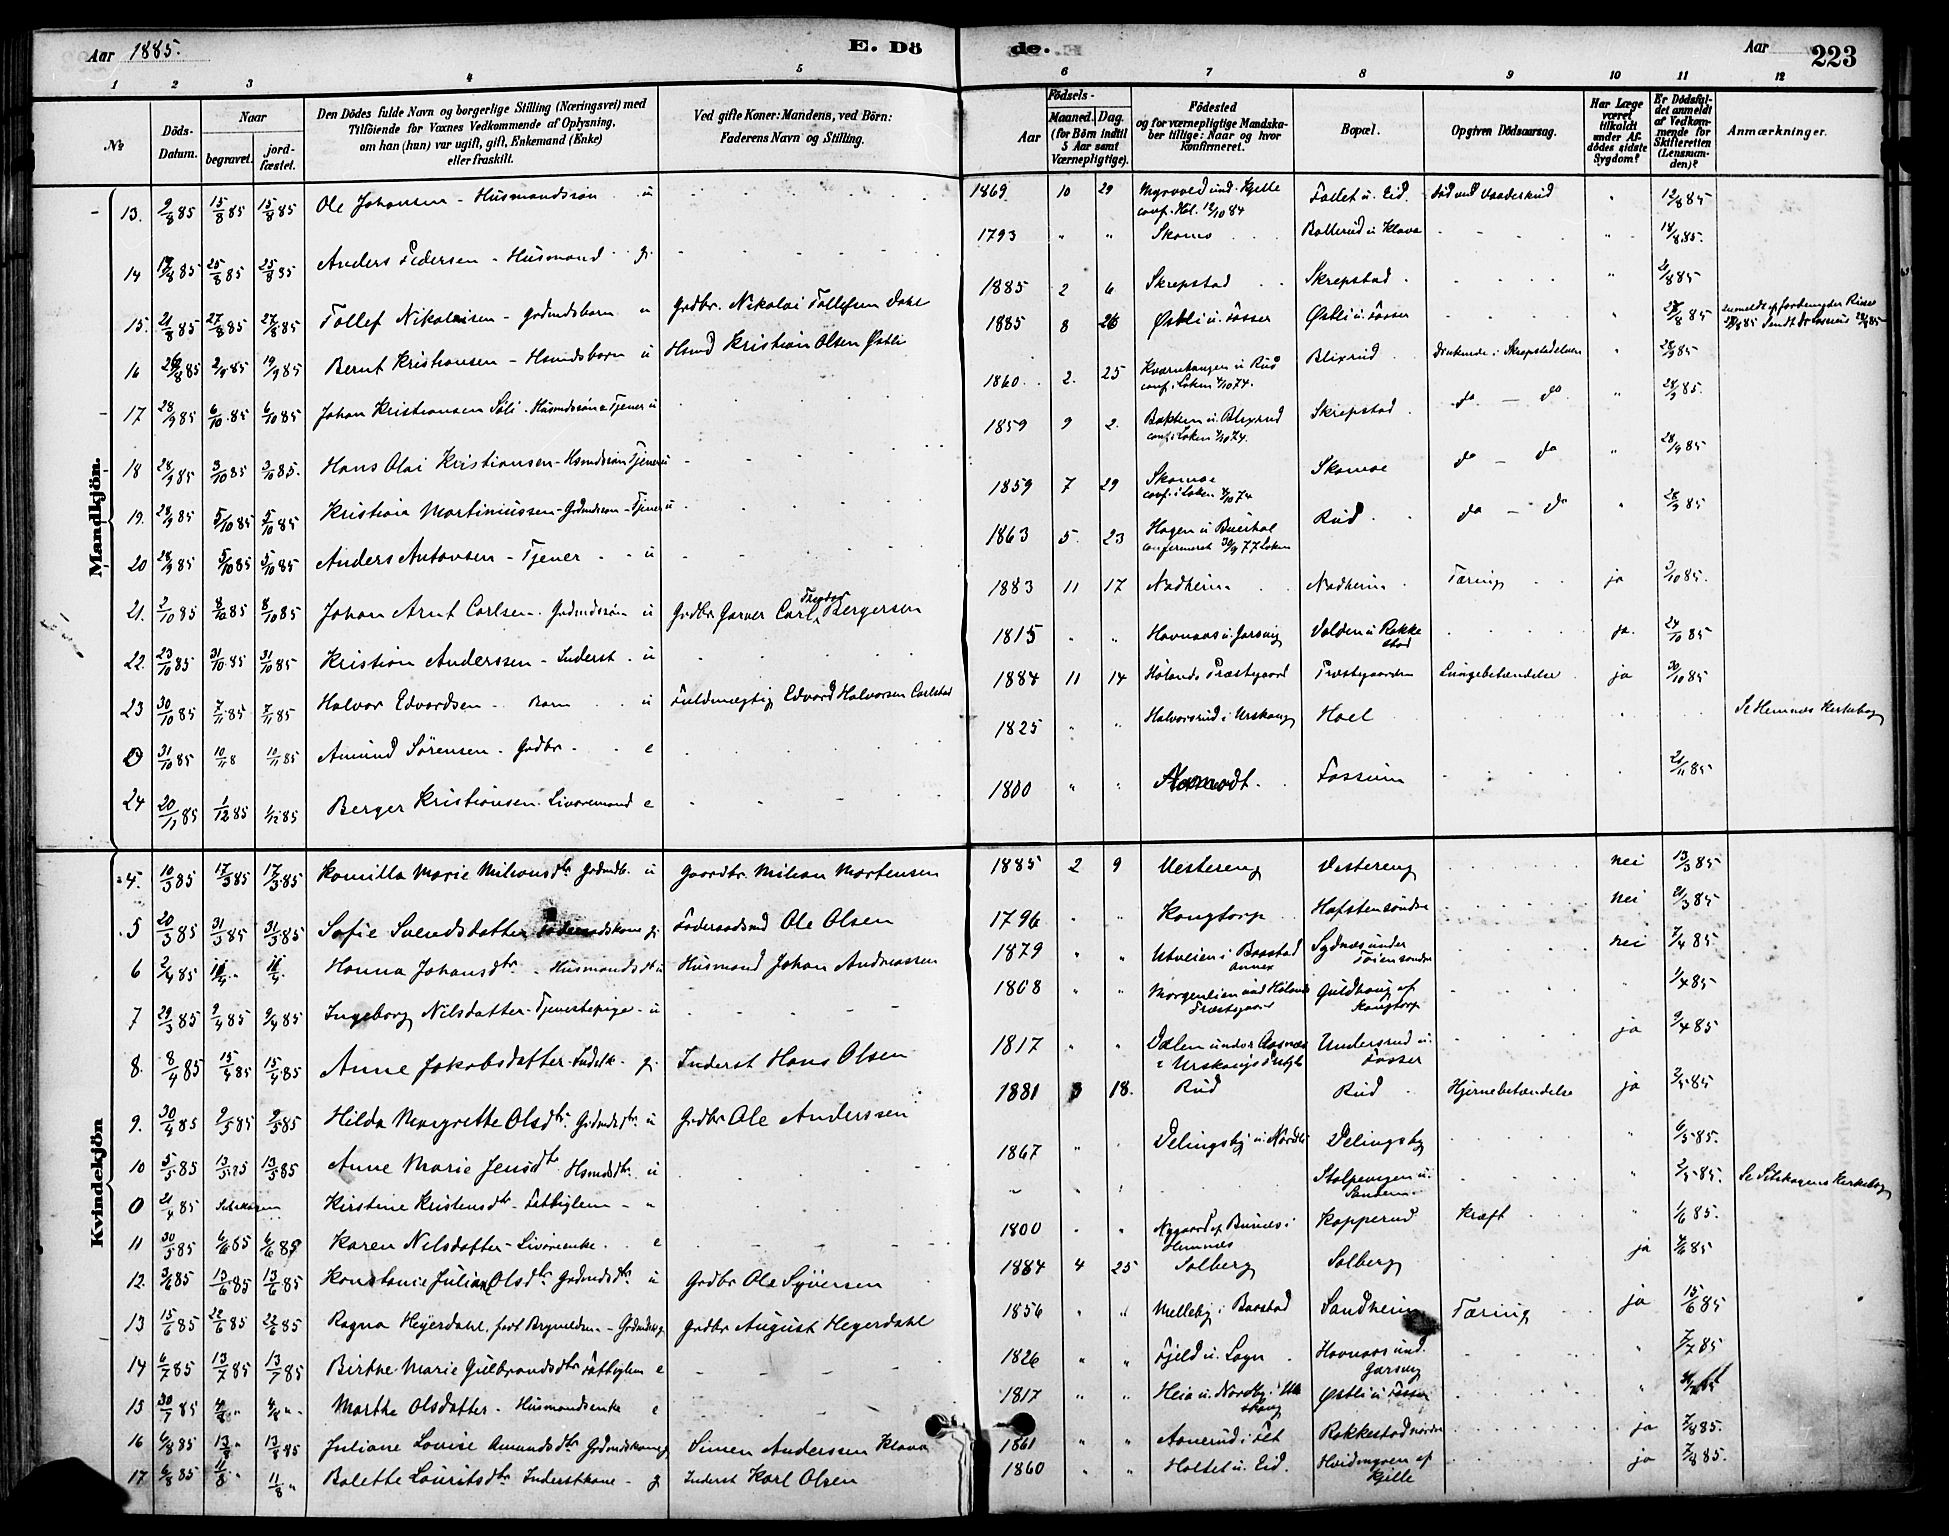 Aar 1885. E. Dö
de. Aar 223
1 2 3 4 5 6 7 8 9 10 11 12
№ Döds-Datum. Naar begravet. jord-fæstet. Den Dödes fulde Navn og borgerlige Stilling (Næringsvei) med Tilföiende for Voxnes Vedkommende af Oplysning, om han (hun) var ugift, gift, Enkemand (Enke) eller fraskilt. Ved gifte Koner: Mandens, ved Börn: Faderens Navn og Stilling. Födsels- Aar Maaned. Dag. (for Börn indtil 5 Aar samt Værnepligtige). Födested og for værnepligtige Mandskaber tillige: Naar og hvor Konfirmeret. Bopæl. Opgiven Dödsaarsag. Har Læge været tilkaldt under Afdödes sidste Sygdom? Er Dödsfaldet anmeldt af Vedkommende for Skifteretten (Lensmanden)? Anmærkninger.
Mandkjön.
13. 9/8 85 15/8 85 15/8 85 Ole Johansen - Husmandssøn u 1869 10 29 Myrvold und. Kjelle conf. Høl. 12/10 84 Tollet u. Eid. 12/8 85
14 85 25/8 85 25/8 85 Anders Pedersen - Husmand g. 1793 " " Skomo Bollerud u Klava 18/8 85.
15. 21/8 85 27/8 85 27/8 85 Tollef Nikolaisen - Grdmdsbarn u Grdbr. Nikolai Tollefsen 1885 2 6 Skrepstad Skrepstad 21/8 85
16 26/8 85 2/9 85 19/9 85 Bernt Kristiansen - Hsmdsbarn u Hsmd Kristian Olsen Østli 1885 8 26 Østli u. Fosser Østli u. Fosser 85
17 28/9 85 6/10 85 6/10 85 Johan Kristiansen Søli - Husmdssøn Tjener u 1860 2. 25 Kværnhaugen u Rud conf. i Løken 4/10 74. Blixrud Druknede i Skrepstadelven 28/9 85
18 28/9 85 3/10 85 3/10 85. Hans Olai Kristiansen - Hsmdssøn Tjener u 1859 9 2. Bakken u. conf. i Løken 4/10 74. Skrepstad do - do 28/9 85.
19. 28/9 85 5/10 85 5/10 85 Kristian Martiniussen - Grdmdssøn - Tjener u 1859 7 29 Skomoe conf. i Løken 4/10 74 Skomoe do - do 28/9 85
20 28/9 85 5/10 85 5/10 85 Anders Antonsen - Tjener u 1863 5. 23 Hagen u confirmeret 30/9 77 Løken Rud do - do 28/9 85
21. 2/10 85 8/10 85 8/10 85 Johan Arnt Carlsen. Grdmdssøn u Grdbr. Garver Carl Theodor Bergersen 1883 11 17 Nadheim Nadheim Tæring ja 3/10 85.
22. 23/10 85 31/10 85 31/10 85 Kristian Anderssen - Inderst u 1815 " " Hovnaas u. Garsvig Dalden u Rakkestad ja. 24/10 85
23 30/10 85 7/11 85 7/11 85 Halvor Edvardsen - Barn u Fuldmægtig Edvard Halvorsen Carlstad 1884 11 14 Hølands Præstgaard Præstgaarden Lungebetændelse ja 30/10 85
0 31/10 85 10/11 8 10/11 85 Amund Sørensen - Grdbr e 1825 " " Halvorsrud i Urskoug Hoel Se Hemnæs Kirkebog
24 20/11 85 1/12 85 1/12 85 Berger Kristiansen. Livøremand e 1800 " " Fossum 21/11 85
Kvindekjön
4. 10/3 85 17/3 85 17/3 85 Kamilla Marie Milionsdtr Grdmdb. u Gaardbr Milian Mortensen 1885 2 9 Vestereng Vestereng nei 13/3 85
5 20/3 85 31/3 85 31/3 85 Sofie Svendsdatter Føderaadskone g. Føderaadsmd Ole Olsen 1796 " " Kongtorp Hafsten søndre nei 21/3 85
6 2/4 85 11/4 " 11/4 Hanna Johansdtr - Husmandsdt u Husmand Johan Andreassen 1879 " " Utveien i Baastad Annex Sydnæs under Toien søndre nei 7/4 85
7 29/3 85 9/4 85 9/4 85 Ingeborg Nilsdatter - Tjenestepige - u 1808 " " Morgenlien und Hølands Præstgaard Guldhaug af Kongtorp 1/4 85
8. 8/4 85 15/4 85 15/4 85 Anne Jakobsdatter - Inderk - g. Inderst Hans Olsen 1817 " " Dalen under Aasnæs i Urskougs Prstgld Undersrud u. Fosser ja 9/4 85
9. 30/4 85 9/5 85 9/5 85 Hilda Margrethe Olsdtr. Grdmdsdtr. u Grdbr Ole Anderssen 1881 3 18. Rud Rud Hjernebetændelse ja 2/5 85
10 5/5 85 13/5 85 13/5 85 Anne Marie Jensdtr Hsmdsdtr. u 1867 " " Delingsby u. Nordli Delingsby " 6/5 85.
0 21/4 85 Setskogen Kirstine Kristensdtr - Fattiglem - " Stolpevogen u. Sandem " 2/5 85. Se Setskogens Kirkebog
11 30/5 85 6/6 85 6/6 85 Karen Nilsdatter - Livøreenke e 1800 " " Nygaard af Bunes i Hemnæs Kopperud Kræft " 1/6 85.
12. 3/6 85 13/6 85 13/6 85 Konstanse Juliane Olsdtr Grdmdsdtr. u Grdbr Ole Syversen 1884 4 25 Solberg Solberg ja 4/6 85
13 15/6 85 22/6 85 22/6 85 Ragna Heyerdahl, født Brynildsen - Grdmdsk g. Grdbr August Heyerdahl 1856 " " Melleby i Baastad Sandheim Tæring ja 15/6 85
14 6/7 85 13/7 85 13/7 85 Birthe Marie Gulbrandsdtr Fattiglem e 1826 " " Fjeld u. Logn Hovnaas und. Garsvig " 7/7 85
15 30/7 85 4/8 " 4/8 " Marthe Olsdatter - Husmandsenke e 1817 " " Heia u. Nordby i Urskoug Østli u Fosser "
16 6/8 85 13/8 " 13/8 85 Juliane Lovise Amundsdtr Grdmdskone g Simen Anderssen Klava 1861 " " Aanerud i Fet Rakkestad nordre ja 7/8 85.
17 6/8 85 11/8 " 11/8 " Bolette Lauritsdtr Inderstkone - g Inderst Karl Olsen 1860 " " Holtet u. Eid. Hvidmyren af Kjelle ja 7/8 85.